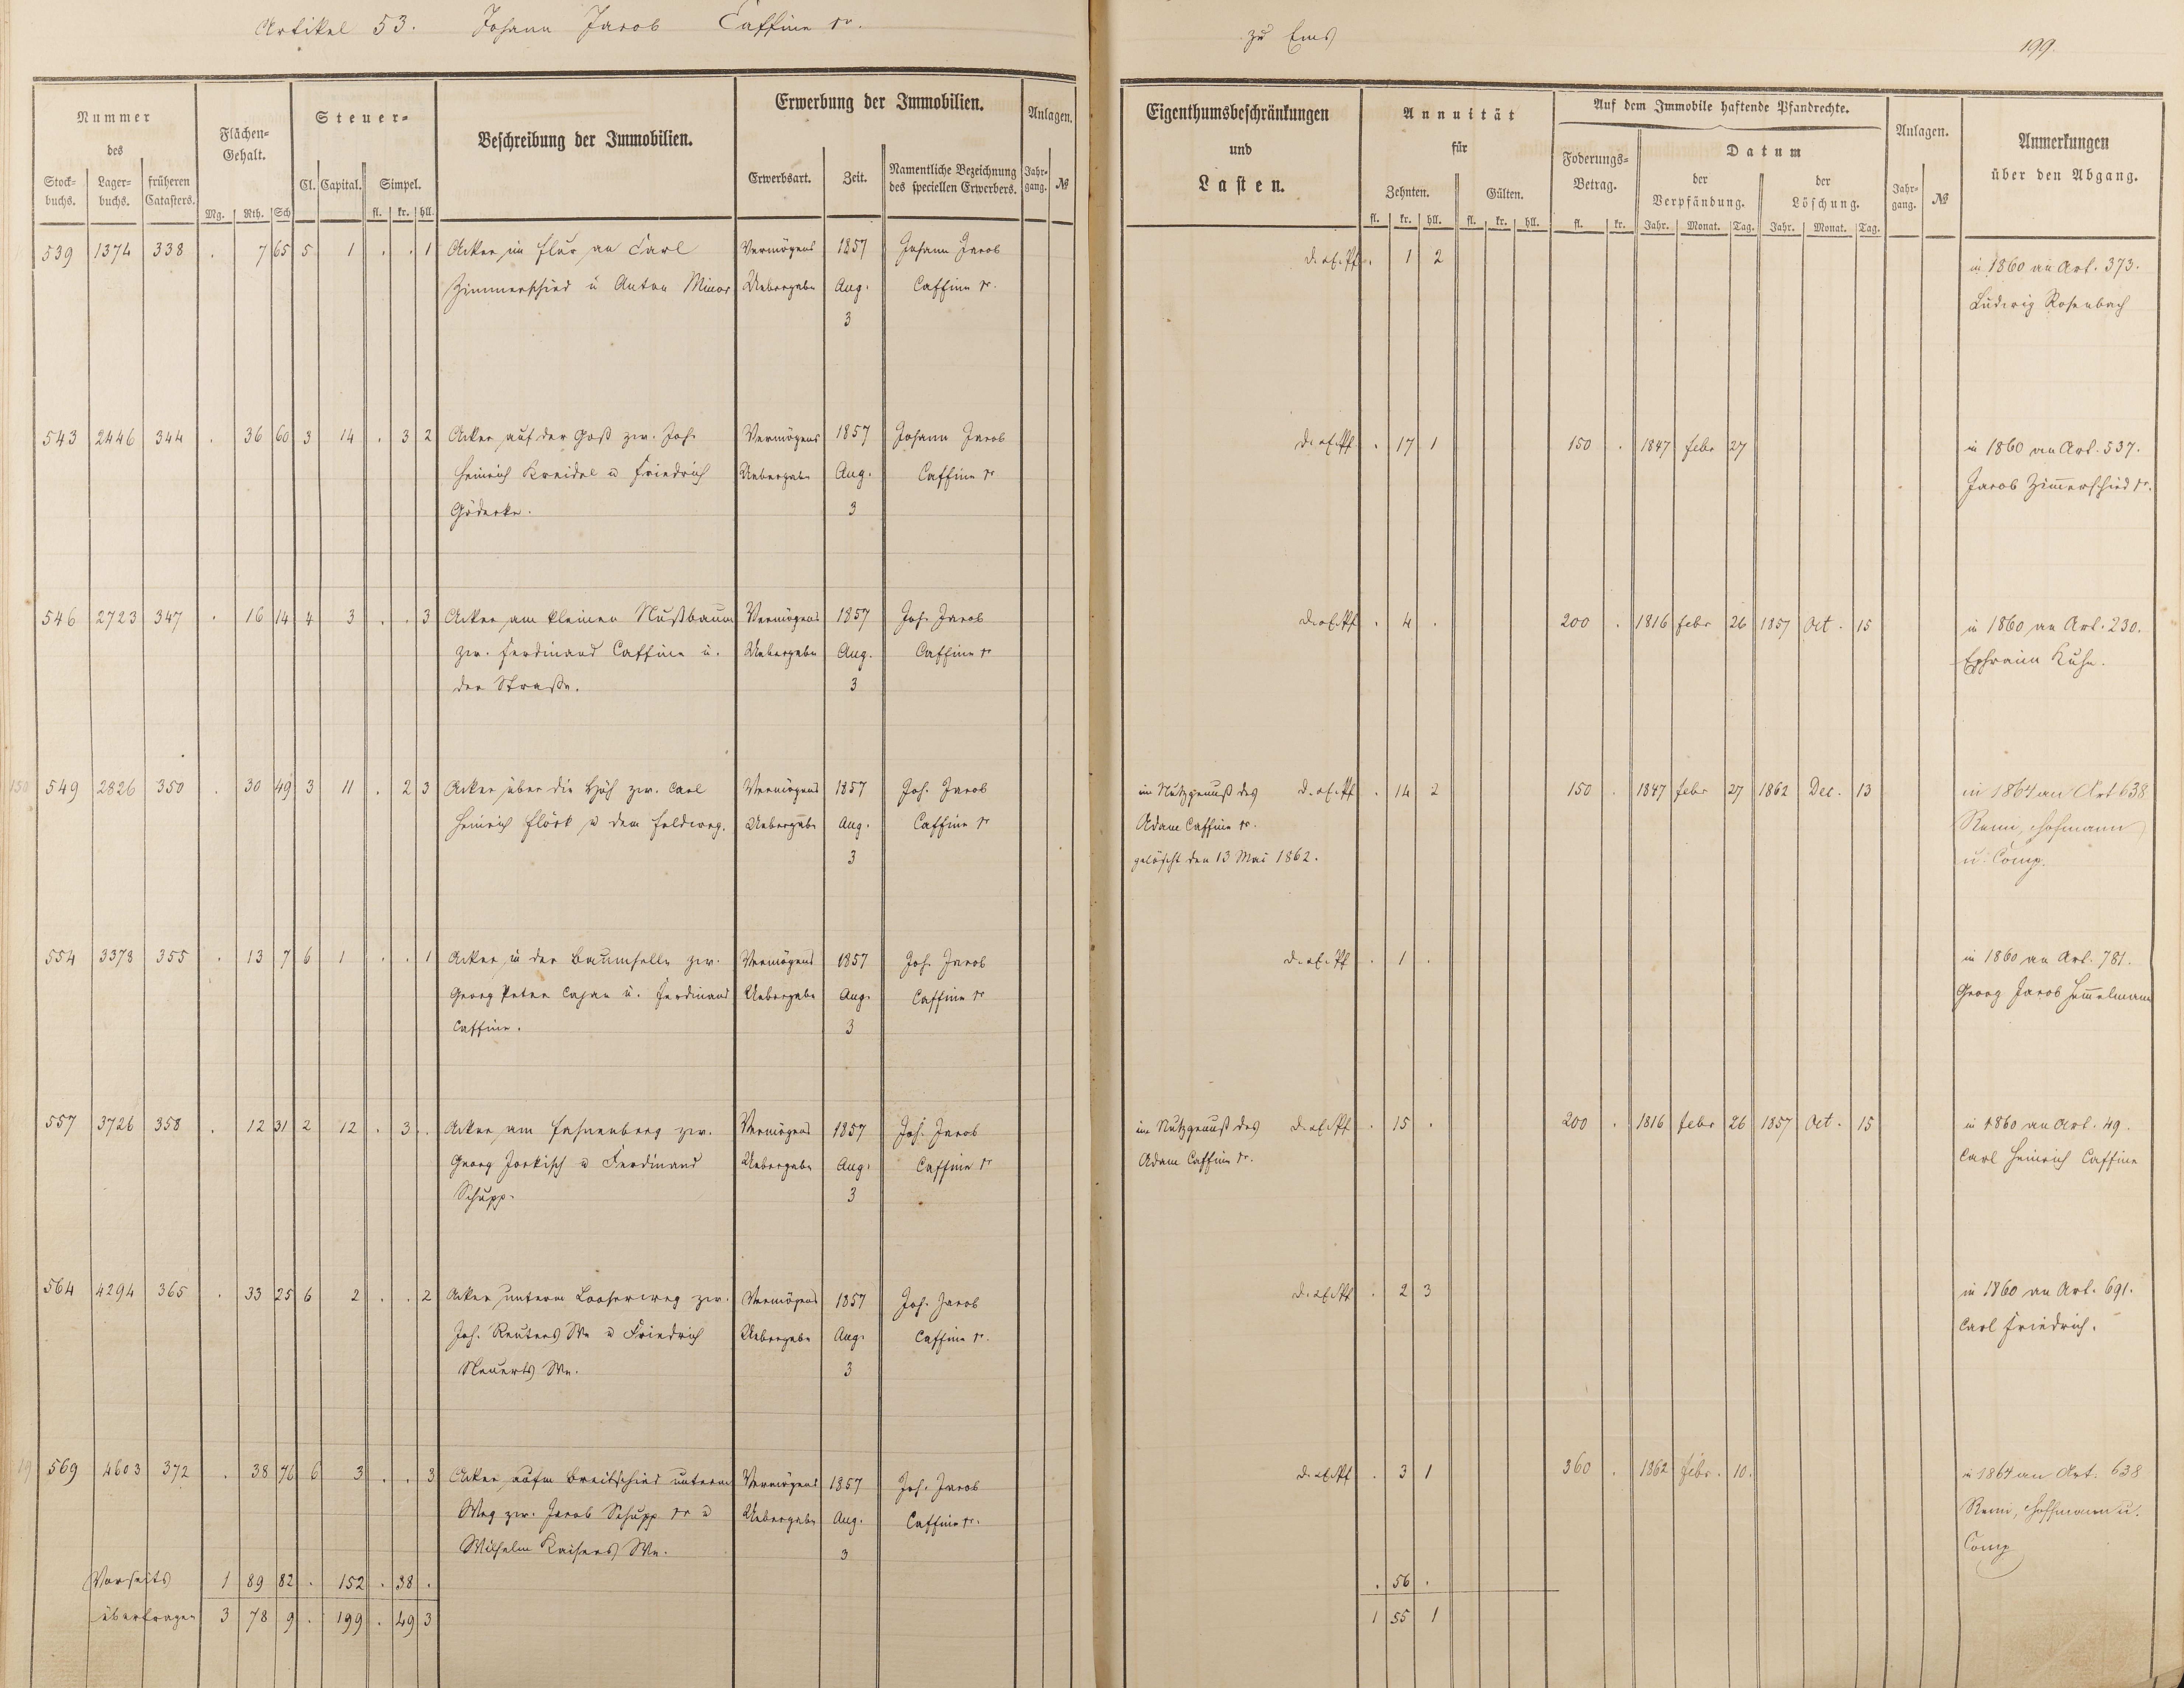 Artikel 53. Johann Jacob Caffine sr.
zu Ems
199.
Nummer des
Stock-buchs. Lager-buchs. früheren Catasters.
Flächen-Gehalt.
Mg. Rth. Sch
Steuer-
Cl. Capital. Simpel.
fl. kr. hll.
Beschreibung der Immobilien.
Erwerbung der Immobilien.
Erwerbsart. Zeit. Namentliche Bezeichnung des speciellen Erwerbers.
Anlagen.
Jahr-gang. №
Eigenthumsbeschränkungen
und
Lasten.
Annuität
für
Zehnten. Gülten.
fl. kr. hll. fl. kr. hll.
Auf dem Immobile haftende Pfandrechte.
Foderungs-Betrag.
fl. kr.
Datum
der Verpfändung. der Löschung.
Jahr. Monat. Tag. Jahr. Monat. Tag.
Anlagen.
Jahr-gang. №
Anmerkungen
über den Abgang.
539 1374 338 . 7 65 5 1 . . 1 Acker im Flur an Carl Vermögens 1857 Johann Jacob
Zimmerschied u Anton Minor Uebergabe Aug. Caffine sr.
3
1 2 in 1860 an Art. 373.
Ludwig Rosenbach
543 2446 344 . 36 60 3 14 . 3 2 Acker auf der Gaß zw. Joh. Vermögens 1857 Johann Jacob
Heinrich Kreidel u Friedrich Uebergabe Aug. Caffine sr
Gödecke. 3
. 17 1 150 . 1847 Febr 27 in 1860 an Art. 537.
Jacob Zimerschied sr.
546 2723 347 . 16 14 4 3 . . 3 Acker am kleinen Nußbaum Vermögens 1857 Joh. Jacob
zw. Ferdinand Caffine u. Uebergabe Aug. Caffine sr
der Straße. 3
. 4 . 200 . 1816 Febr 26 1857 Oct. 15 in 1860 an Art. 230.
Ephraim Kuhn.
150 549 2826 350 . 30 49 3 11 . 2 3 Acker über die Höh zw. Carl Vermögens 1857 Joh. Jacob
Heinrich Flöck u dem Feldweg. Uebergabe Aug. Caffine sr
3
im Nutzgenuß des . 14 2 150 . 1847 Febr 27 1862 Dec. 13 in 1864 an Art 638
Adam Caffine sr. Remi, Hofmann
gelöscht den 13 Mai 1862. u. Comp.
554 3373 355 . 13 7 6 1 . . 1 Acker in der Baumhelle zw. Vermögens 1857 Joh. Jacob
Georg Peter Cajan u. Ferdinand Uebergabe Aug. Caffine sr
Caffine. 3
. 1 . in 1860 an Art. 781.
Georg Jacob Hemelmann
557 3726 358 . 12 31 2 12 . 3 . Acker am Fahnenberg zw. Vermögens 1857 Joh. Jacob
Georg Jorkisch u Ferdinand Uebergabe Aug. Caffine sr
Schupp. 3
im Nutzgenuß des . 15 . 200 . 1816 Febr 26 1857 Oct. 15 in 1860 an Art. 49.
Adam Caffine sr. Carl Heinrich Caffine
564 4294 365 . 33 25 6 2 . . 2 Acker unterm Vermögens 1857 Joh. Jacob
Joh. Reuters We u Friedrich Uebergabe Aug. Caffine sr.
Neuerts We. 3
. 2 3 in 1860 an Art. 691.
Carl Friedrich.
569 4603 372 . 38 76 6 3 . . 3 Acker aufm Breitschied unterm Vermögens 1857 Joh. Jacob
Weg zw. Jacob Schupp sr u Uebergabe Aug. Caffine sr.
Wilhelm Kaisers We. 3
. 3 1 360 . 1862 Febr. 10. in 1864 an Art. 638
Remi, Hoffmann u.
Comp
Vorseits 1 89 82 . 152 . 38 . . 56 .
übertragen 3 78 9 . 199 . 49 3 1 55 1